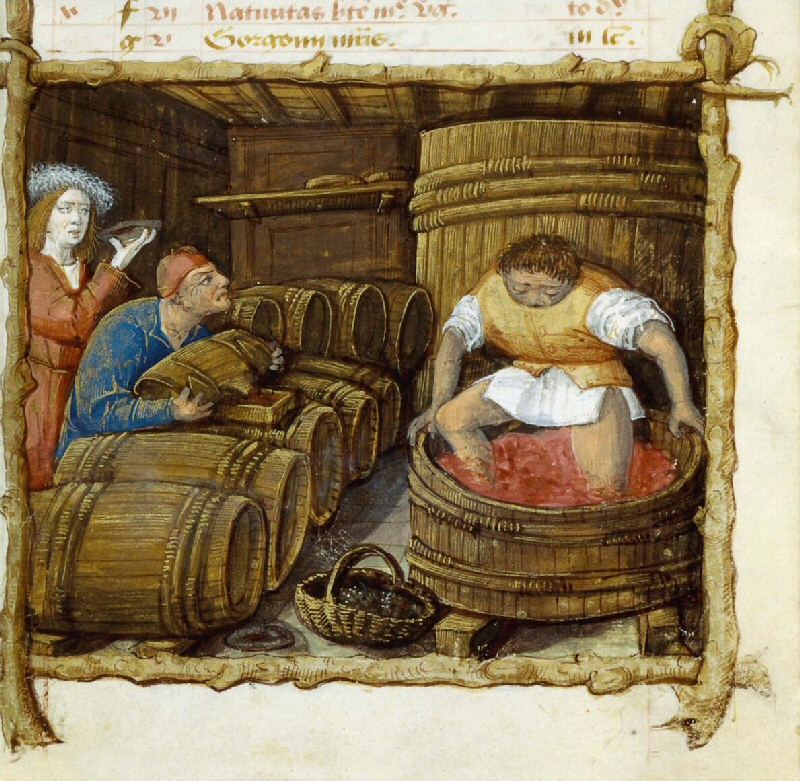 f vi Natiuitas bte m̄. vg. to d̄.
g v Gorgonii mr̄is. iii lc̄.